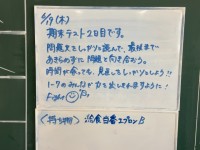 6/19(木)
期末テスト2日目です。
問題文をしっかりと読んで、最後まで
あきらめずに問題と向き合おう。
時間が余っても、見直しをしっかりしよう!!
1-7のみんなが力を出しきれますように!
Fight
〈持ち物〉 給食当番エプロン